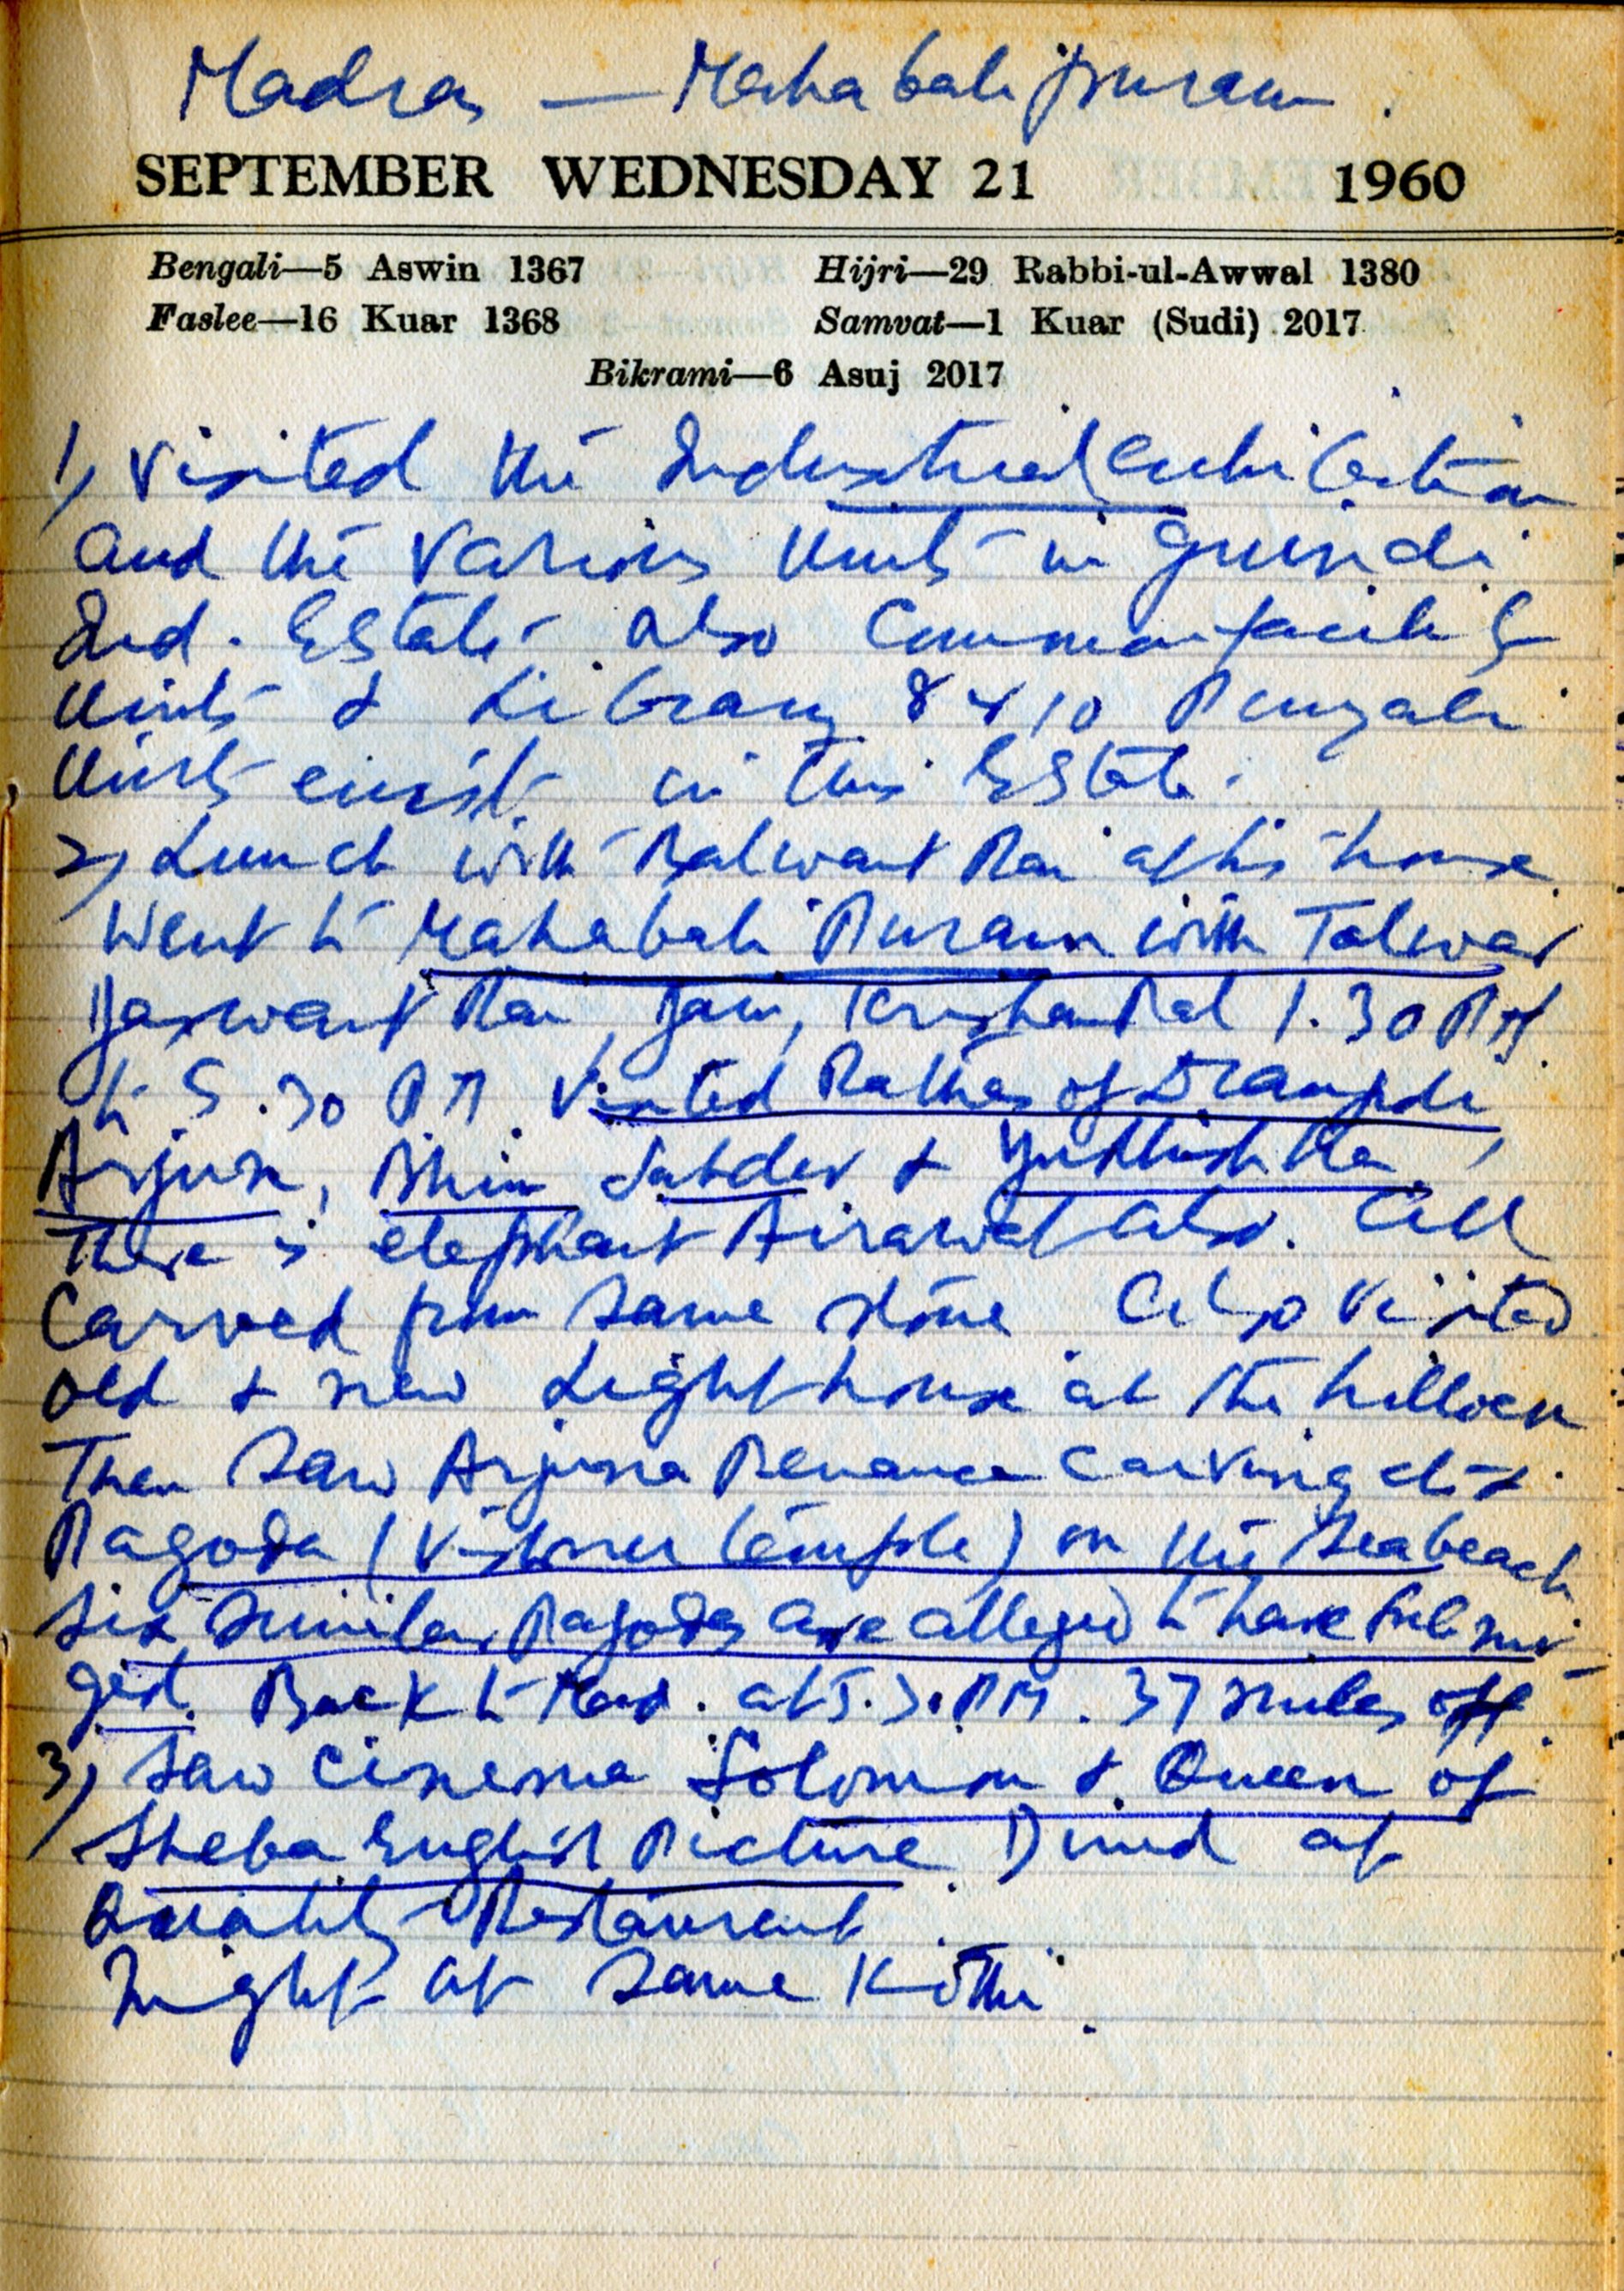 Madras — Mahabalipuram.
SEPTEMBER WEDNESDAY 21 1960
Bengali—5 Aswin 1367 Hijri—29 Rabbi-ul-Awwal 1380
Faslee—16 Kuar 1368 Samvat—1 Kuar (Sudi) 2017
Bikrami—6 Asuj 2017
1) Visited the Industrial Exhibition
and the various Units in Guindi
Ind. Estate. Also Common facility
Units & Library 8 to 10 Punjabi
Units exist in this Estate.
2) Lunch with Balwant Rai at his house
Went to Mahabali Puram with Talwar
Jaswant Rai, Krishan Pal 1.30 PM
to 5.30 PM. Visited Rathas of Draupdi,
Arjun, Bhim Sahdev & Yudhishther
There is elephant Airawat also. All
Carved from same stone Also visited
old & new Light house at the hillock
Then saw Arjuna Penance carving etc
Pagoda (Vishnu temple) on the Seabeach
six similar Pagodas are alleged to have submer
ged. Back to Mad. at 5.30 PM. 37 miles off.
3) Saw Cinema Solomon & Queen of
Sheba English Picture. Dined at
Quality Restaurent.
Night at same Kothi.